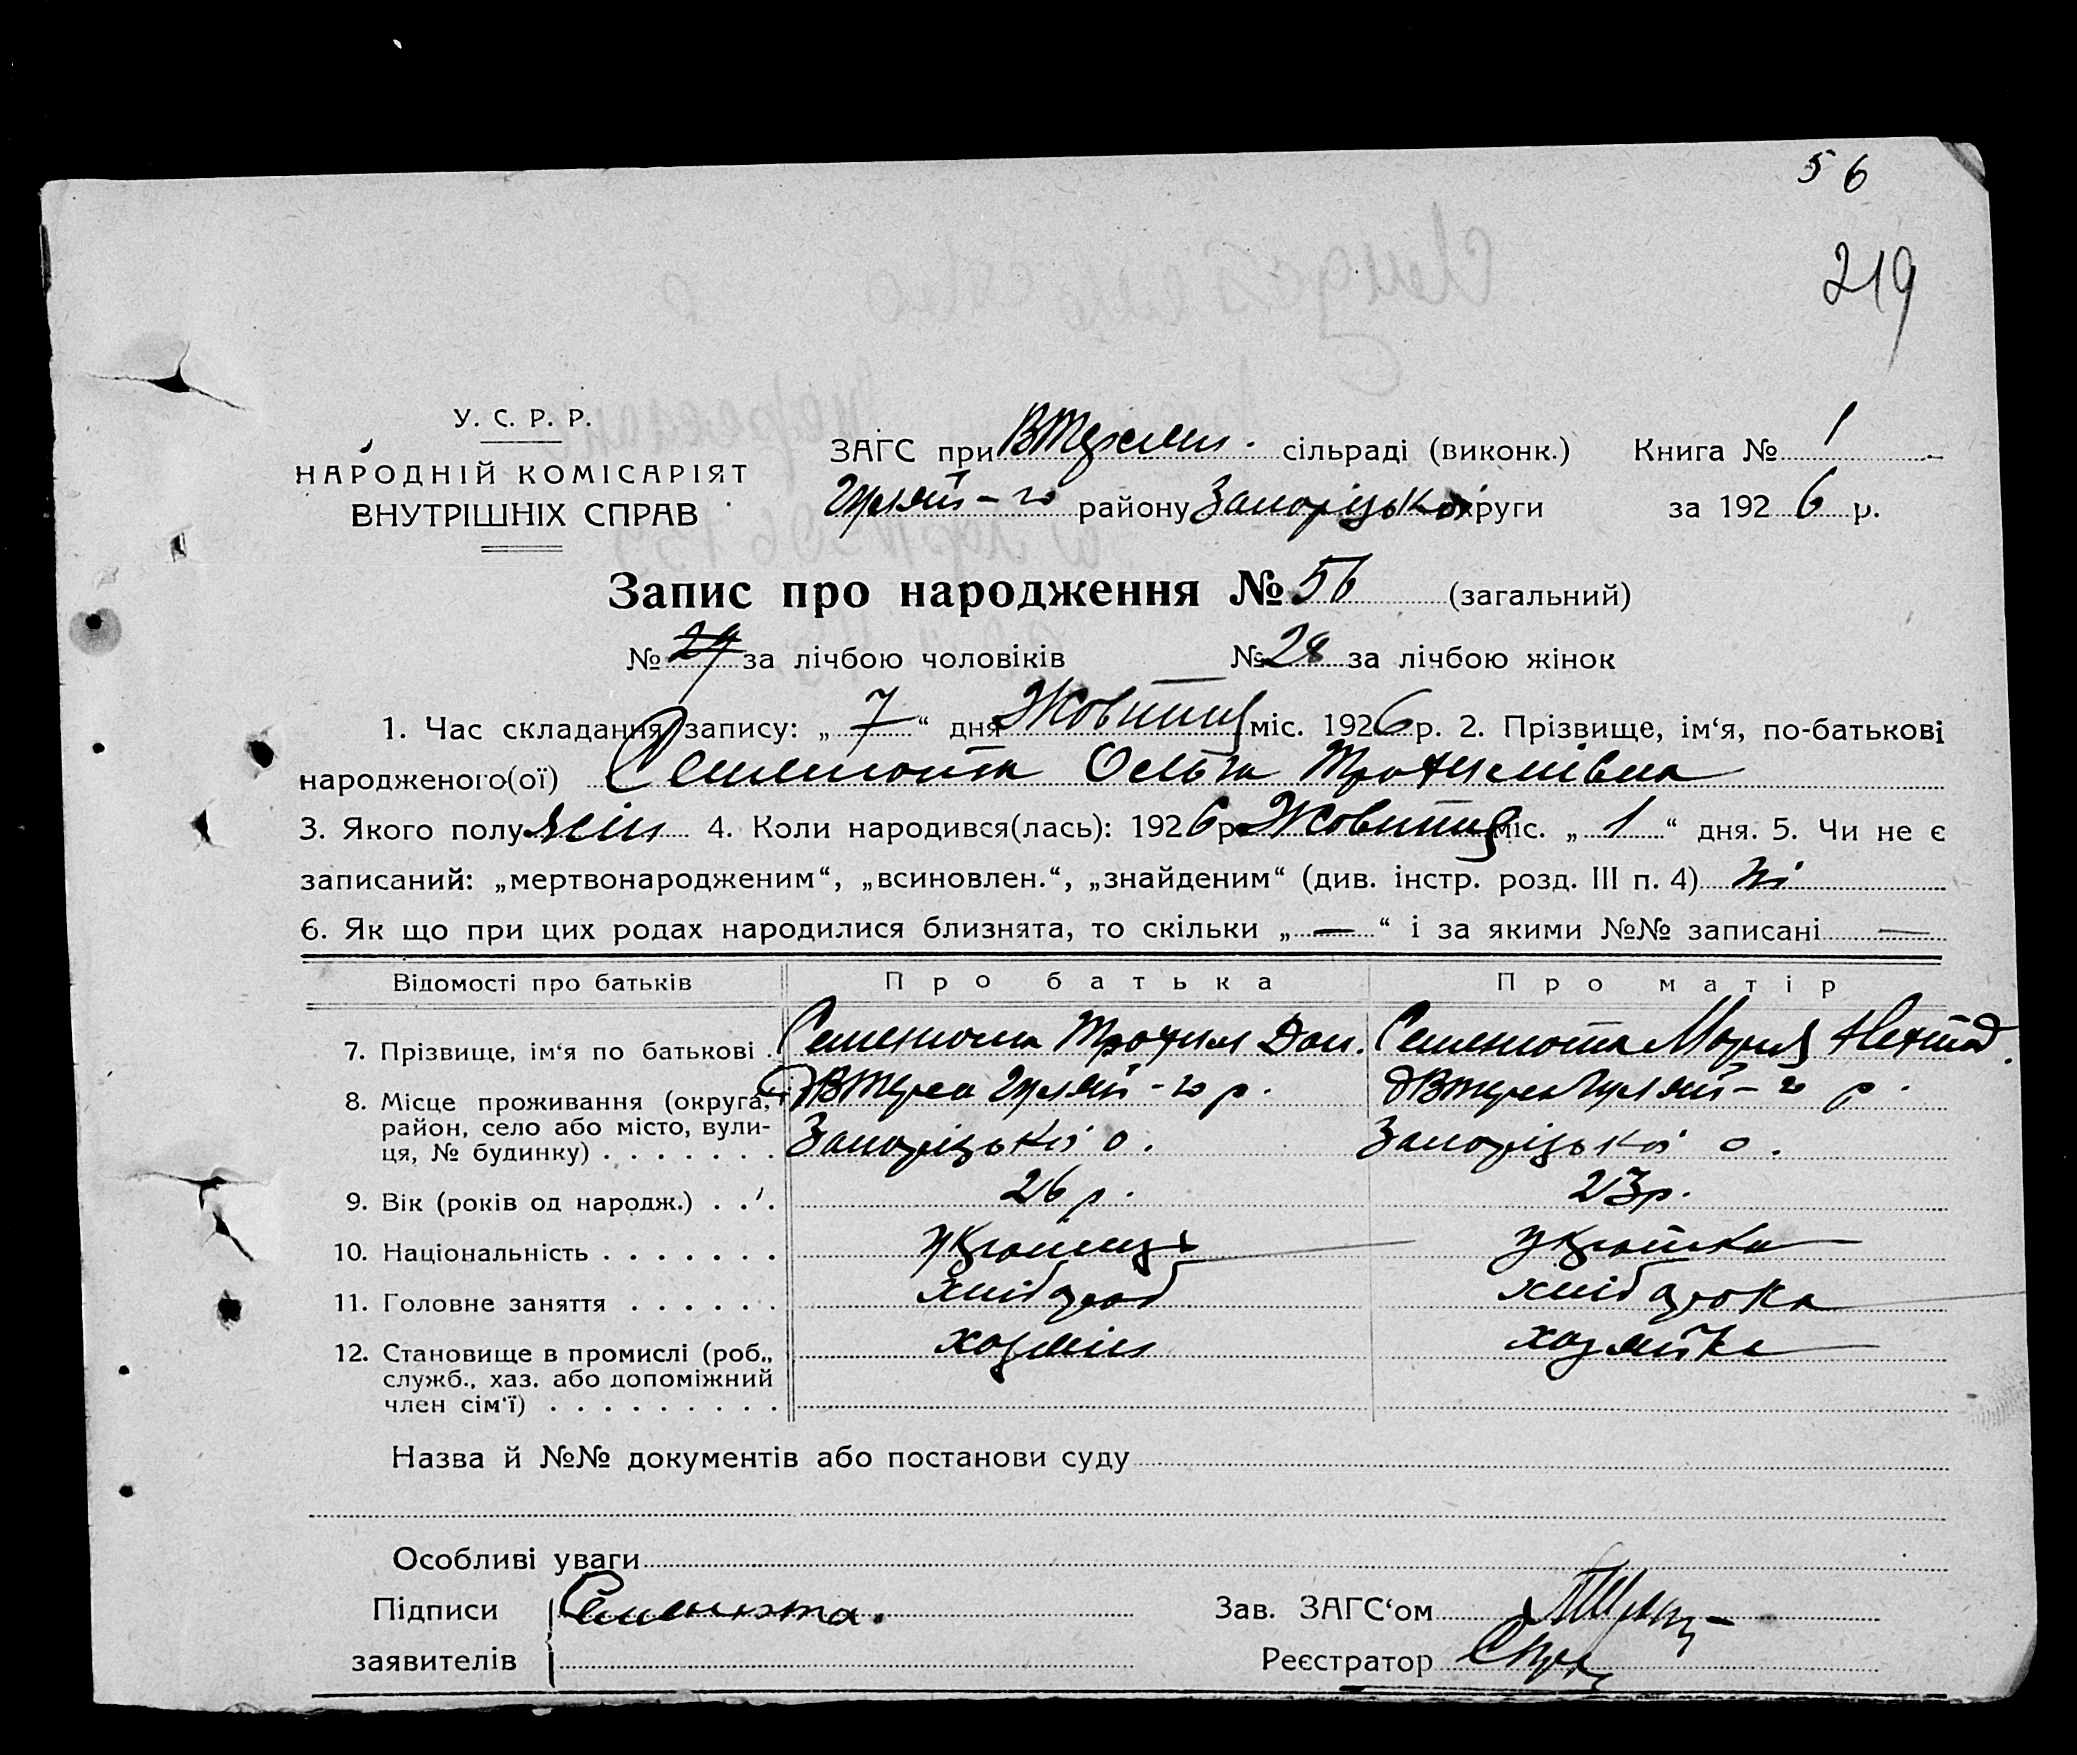 56
219
У. С. Р. Р.
НАРОДНІЙ КОМІСАРІЯТ
ВНУТРІШНІХ СПРАВ
ЗАГС при сільраді (виконк.) Книга № 1
Гуляй-го району Запоріцької округи за 1926 р.
Запис про народження № 56 (загальний)
№ 29 за лічбою чоловіків № 28 за лічбою жінок
1. Час складання запису: „ 7 “ дня Жовтня міс. 1926 р. 2. Прізвище, ім‘я, по-батькові
народженого(ої) Семенюта Ольга Трохимівна
3. Якого полу жін 4. Коли народився(лась): 1926 р. Жовтня міс. „ 1 “ дня. 5. Чи не є
записаний: „мертвонародженим“, „всиновлен.“, „знайденим“ (див. інстр. розд. III п. 4) ні
6. Як що при цих родах народилися близнята, то скільки „ — “ і за якими №№ записані —
Відомості про батьків Про батька Про матір
7. Прізвище, ім‘я по батькові . Семенюта Трохим Дан. Семенюта Мария
8. Місце проживання (округа, Гуляй-го р. Гуляй-го р.
район, село або місто, вули- Запоріцької о. Запоріцької о.
ця, № будинку) . . . . . . .
9. Вік (років од народж.) . . . 26 р. 23 р.
10. Національність . . . . . . . українець українка
11. Головне заняття . . . . . . хлібороб хліборобка
12. Становище в промислі (роб., хазяїн хазяйка
служб., хаз. або допоміжний
член сім‘ї) . . . . . . . . .
Назва й №№ документів або постанови суду
Особливі уваги
Підписи Семенюта. Зав. ЗАГС‘ом
заявителів Реєстратор